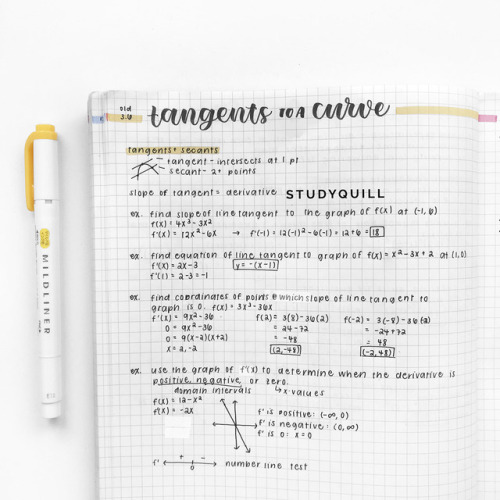 old
3.6
tangents TO A curve
tangents + secants
tangent - intersects at 1 pt
secant - 2+ points
slope of tangent = derivative STUDYQUILL
ex. find slope of line tangent to the graph of f(x) at (-1,6)
f(x) = 4x³ - 3x²
f'(x) = 12x² - 6x → f'(-1) = 12(-1)² - 6(-1) = 12+6 = 18
ex. find equation of line tangent to graph of f(x) = x² - 3x + 2 at (1,0)
f'(x) = 2x - 3 y = -(x-1)
f'(1) = 2-3 = -1
ex. find coordinates of points @ which slope of line tangent to
graph is 0. f(x) = 3x³ - 36x
f'(x) = 9x² - 36 f(2) = 3(8) - 36(2) f(-2) = 3(-8) - 36(2)
0 = 9x² - 36 = 24 - 72 = -24 + 72
0 = 9(x-2)(x+2) = -48 = 48
x = 2, -2 (2,-48) (-2,48)
ex. use the graph of f'(x) to determine when the derivative is
positive, negative, or zero.
domain intervals ↳ x values
f(x) = 12 - x²
f'(x) = -2x
f' is positive: (-∞, 0)
f' is negative: (0, ∞)
f' is 0: x = 0
f' + - number line test
0
MILDLINER